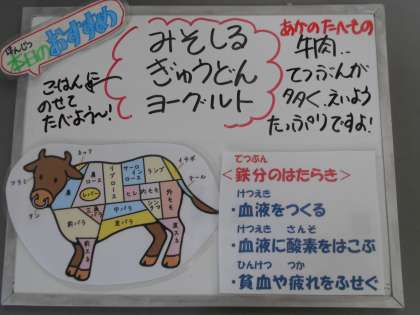 ほんじつ
本日のおすすめ
みそしる
ぎゅうどん
ヨーグルト
ごはんに
のせて
たべよう〜!
あかのたべもの
牛肉..
てつぶんが
多く、えいよう
たっぷりですよ!
タン
レバー
肩ロース
リブロース
サーロイン
ランプ
イチボ
テール
ヒレ
肩バラ
中バラ
てつぶん
<鉄分のはたらき>
けつえき
・血液をつくる
けつえき さんそ
・血液に酸素をはこぶ
ひんけつ つか
・貧血や疲れをふせぐ